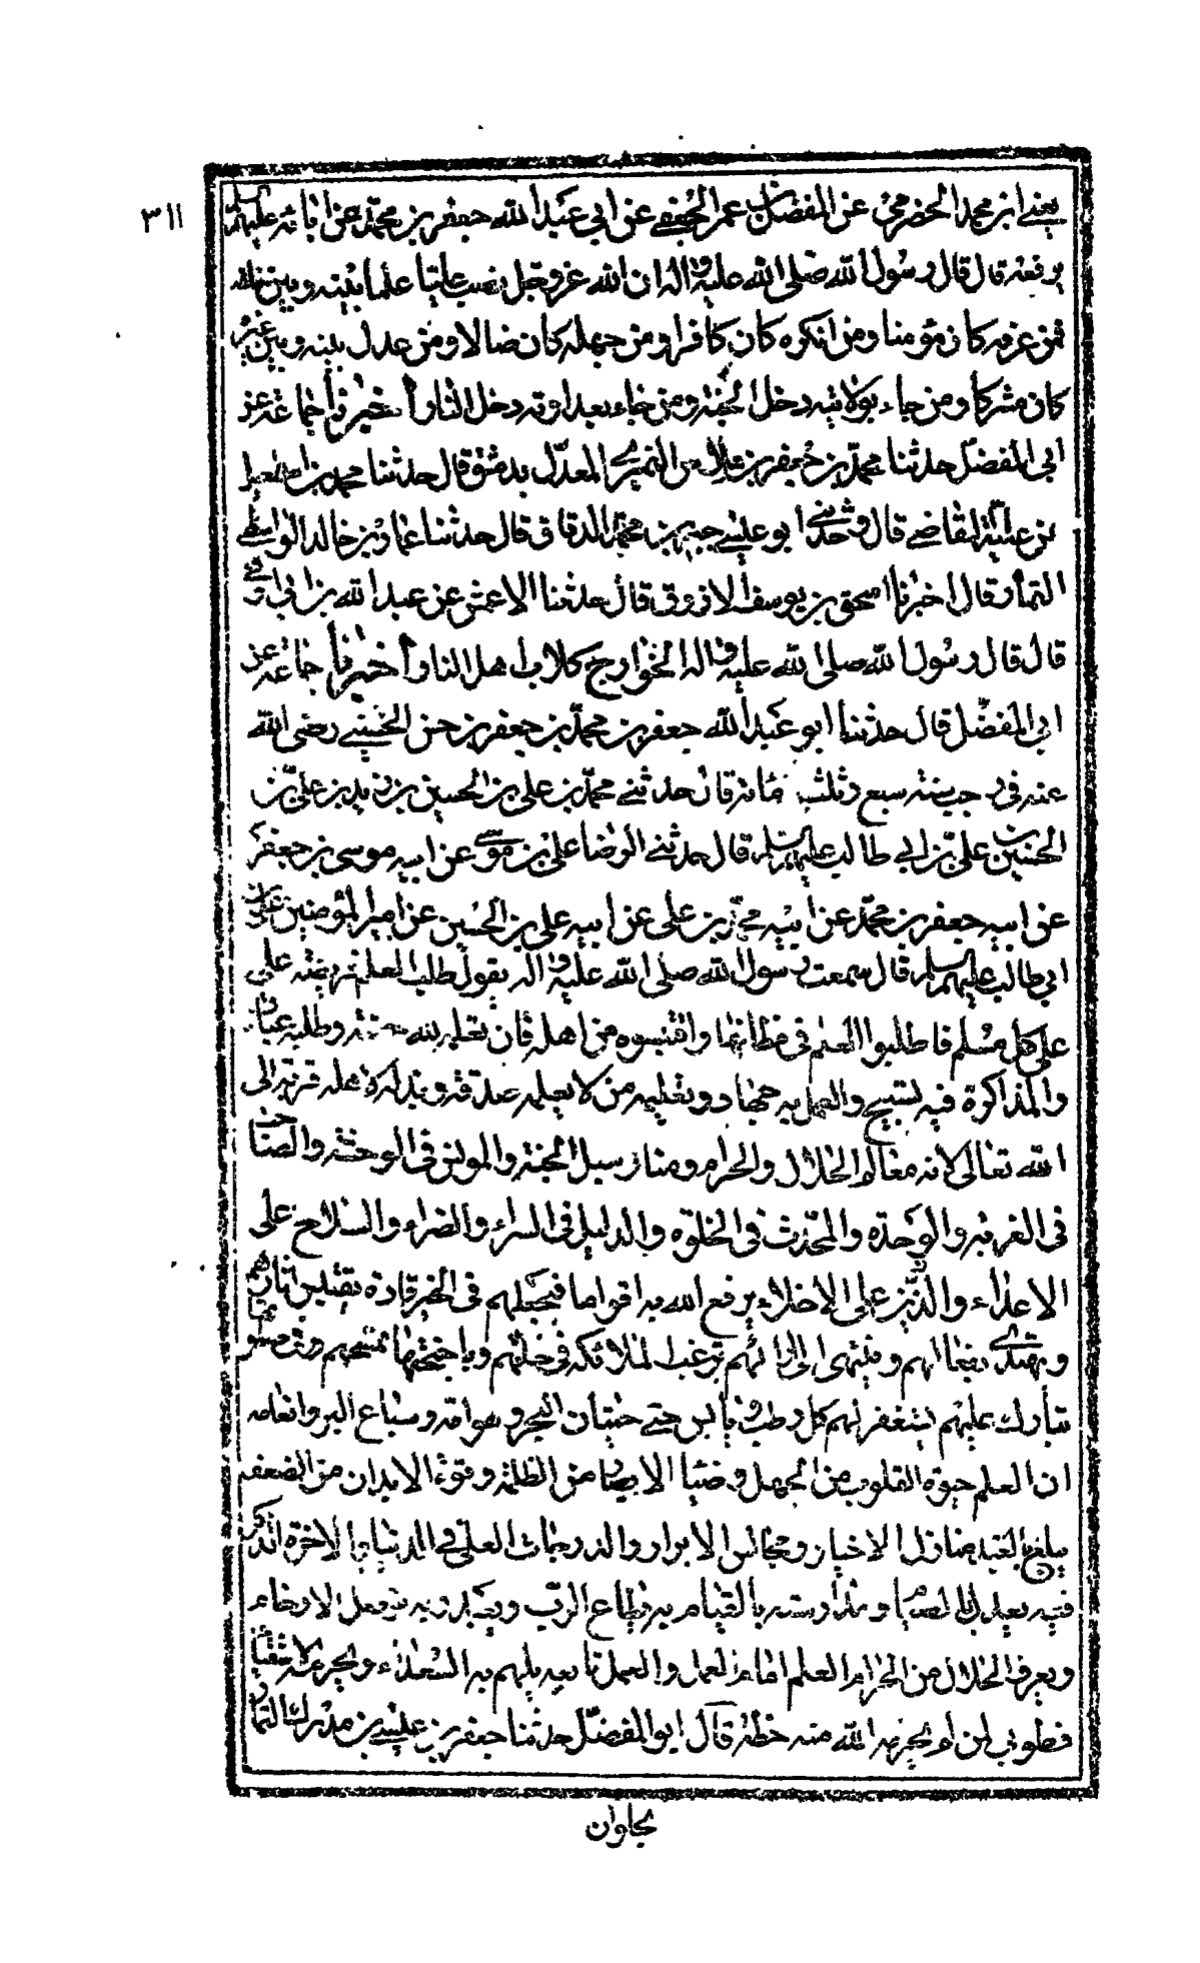 ٣١١
يعني ابن محمد الحضرمي عن المفضل بن عمر الجعفي عن ابي عبد الله جعفر بن محمد عن ابائه عليهم السلم
يرفعه قال قال رسول الله صلى الله عليه واله ان الله عز وجل نصب عليا علما بينه وبين خلقه
فمن عرفه كان مؤمنا ومن انكره كان كافرا ومن جهله كان ضالا ومن عدل بينه وبين غيره
كان مشركا ومن جاء بولايته دخل الجنة ومن جاء بعداوته دخل النار أخبرنا جماعة عن
ابي المفضل حدثنا محمد بن جعفر بن ملاس النميري المعدل بدمشق قال حدثنا محمد بن اسمعيل
بن علية القاضي قال وحدثني ابو عيسى جبير بن محمد الدقاق قال حدثنا عمار بن خالد الواسطي
التمار قال اخبرنا اسحق بن يوسف الازرق قال حدثنا الاعمش عن عبد الله بن ابي اوفى
قال قال رسول الله صلى الله عليه واله الخوارج كلاب اهل النار أخبرنا جماعة عن
ابي المفضل قال حدثنا ابو عبد الله جعفر بن محمد بن جعفر بن حسن الحسيني رضي الله
عنه في رجب سنة سبع وثلث مائة قال حدثني محمد بن علي بن الحسين بن زيد بن علي بن
الحسين بن علي بن ابي طالب عليهم السلم قال حدثني الرضا علي بن موسى عن ابيه موسى بن جعفر
عن ابيه جعفر بن محمد عن ابيه محمد بن علي عن ابيه علي بن الحسين عن امير المؤمنين علي بن
ابي طالب عليهم السلم قال سمعت رسول الله صلى الله عليه واله يقول طلب العلم فريضة على
على كل مسلم فاطلبوا العلم في مظانها واقتبسوه من اهله فان تعلمه لله حسنة وطلبه عبادة
والمذاكرة فيه تسبيح والعمل به جهاد وتعليمه من لا يعلمه صدقة وبذله لاهله قربة الى
الله تعالى لانه معالم الحلال والحرام ومنار سبيل الجنة والمونس في الوحشة والصاحب
في الغربة والوحدة والمحدث في الخلوة والدليل في السراء والضراء والسلاح على
الاعداء والزين على الاخلاء يرفع الله به اقواما فيجعلهم في الخير قادة يقتبس اثارهم
ويهتدى بفعالهم وينتهى الى ارائهم ترغب الملائكة في خلتهم وباجنحتها تمسحهم وفي صلوتها
تبارك عليهم يستغفر لهم كل رطب ويابس حتى حيتان البحر وهوامه وسباع البر وانعامه
ان العلم حيوة القلوب من الجهل وضياء الابصار من الظلمة وقوة الابدان من الضعف
يبلغ بالعبد منازل الاخيار ومجالس الابرار والدرجات العلى في الدنيا والاخرة الذكر
فيه يعدل بالصيام ومدارسته بالقيام به يطاع الرب ويعبد وبه توصل الارحام
ويعرف الحلال من الحرام العلم امام العمل والعمل تابعه يلهم به السعداء ويحرمه الاشقياء
فطوبى لمن لم يحرمه الله منه حظه قال ابو المفضل حدثنا جعفر بن عيسى بن مدرك التمار
بحلوان